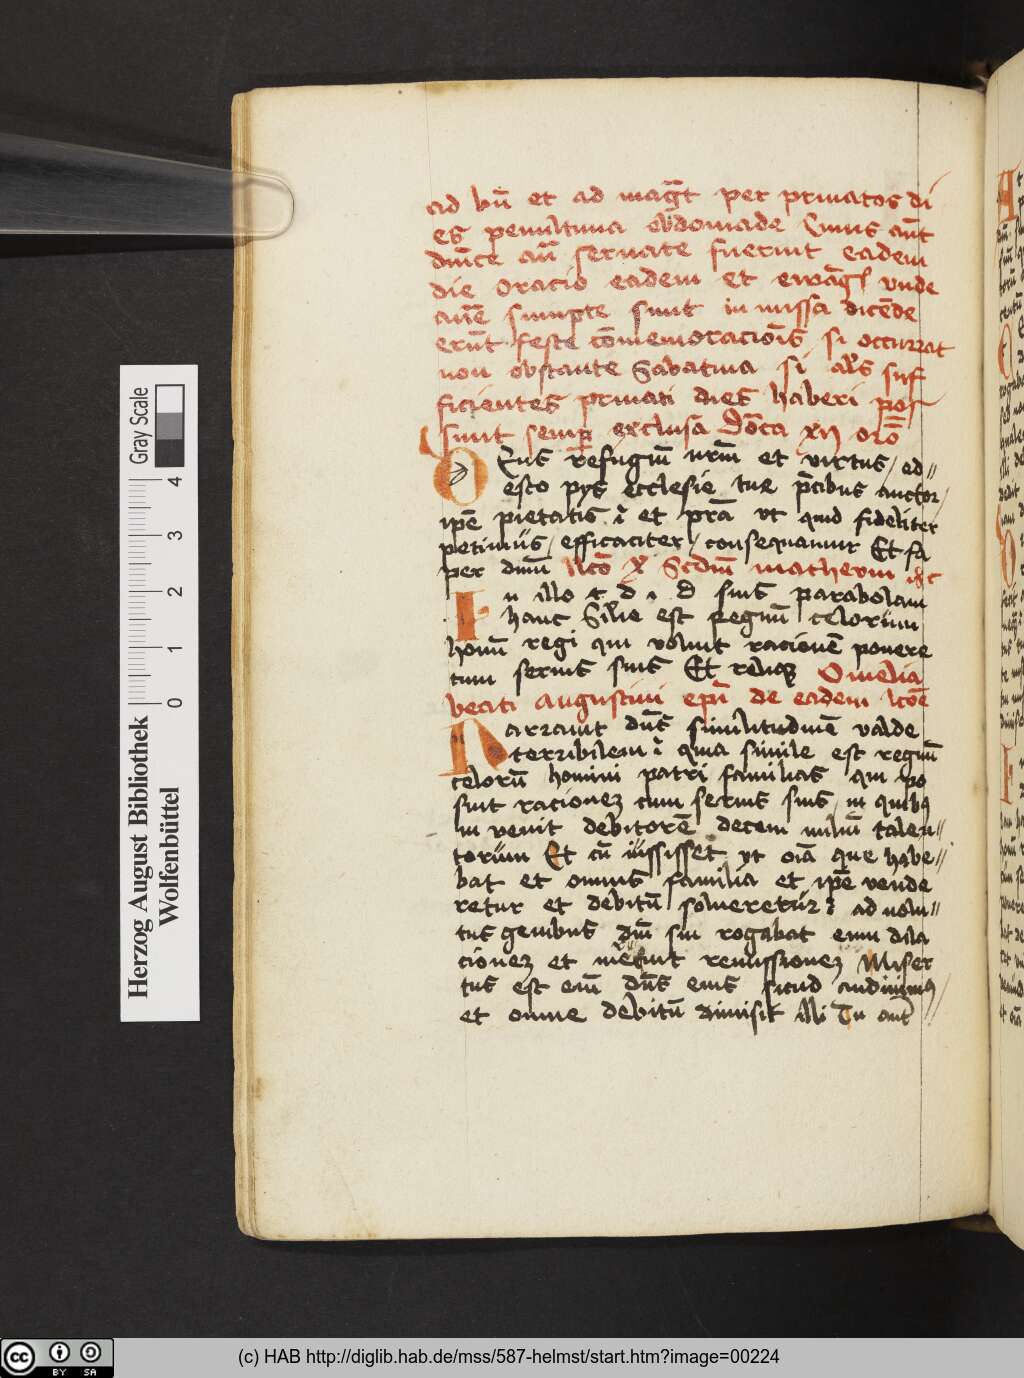 ad bn̄ et ad mag̅t per priuatos di
es penultima ebdomade Cuius añt
dn̄ice an̄ seruate fuerint eadem
die oracio eadem et ewāgl vnde
aut̄e sumpte sunt in missa dicēde
erūt feste cōmemoracōis si occurrat
non obstante Sabatina si al̄s suf
ficientes priuati dies haberi pos
sunt semp exclusa dōca xxij orō
Deus refugiū nr̄m et virtus / ed〃
esto pys ecclesie tue p̄cibus auctor /
ip̄e pietatis ⁊ et pr̄a vt quod fideliter
petimus / efficaciter / consequamur Et fa
per dnm̄ lcō Scdm̄ matheum
In illo t d i d suis parabolam
hanc Sile est regnū celorum
homī regi qui voluit racionē ponere
cum seruis suis Et reliq Omelia
beati augustini ep̄i de eadem lcōe
Narrauit dn̄s similitudinē valde
terribilem ⁊ quia simile est regnū
celorū homini patri familias qui po
suit racionez cum seruis suis / in quibꝯ
in venit debitorē decem miliū talen〃
torum Et cū iussisset vt oīa que habe〃
bat et omnis familia et ip̄e vende
retur et debitū solueretur ⁊ ad uolu〃
tus genibus dn̄i sui rogabat eum dila
cionez et meruit remissionez Miser
tus est eiū dn̄s eius sicud audiuimꝯ /
et omne debitū dimisit illi Tu aut̄ 〃
Herzog August Bibliothek
Wolfenbüttel
Gray Scale
0 1 2 3 4
cc BY SA
(c) HAB http://diglib.hab.de/mss/587-helmst/start.htm?image=00224